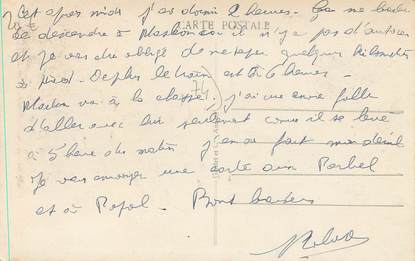 Cet après midi j'ai dormi 2 heures. Ça me
CARTE POSTALE
de descendre à car il n'y a pas d'autocar
et je vais être obligé de me taper quelques kilomètres
à pied. De plus le train est à 6 heures.
va à la chasse, j'ai une envie folle
d'aller avec lui seulement comme il se lève
à 5 heures du matin j'en ai fait mon deuil
Je vais envoyer une carte aux
et à Bons baisers